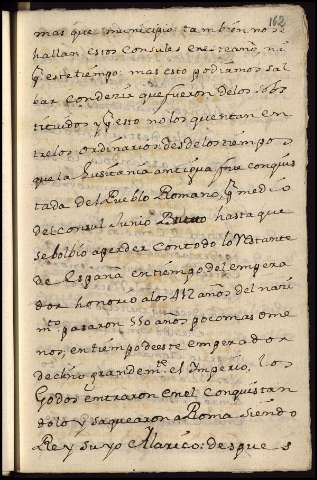 162
mas que municipio: tambien no se
hallan estos consules en este ano, ni
q̃ este tiempo: mas esto podiamos sal
bar con dezir que fueron de los sobs
titudos y q̃ esto no los quentan en
tre los ordinarios desde los tiempos
que la Lusitania antigua fue conquis
tada del Pueblo Romano, q̃ medio
del consul Junio Bruto hasta que
se bolbio a perder con todo lo restante
de España en tiempo del empera
dor honorio a los 412 años del naci
mto pasaron 550 años poco mas o me
nos, en tiempo deste emperador
declino grandemte el Imperio, los
Godos entraron en el conquistan
dolo y saquearon a Roma siendo
Rey suyo Alarico: despues